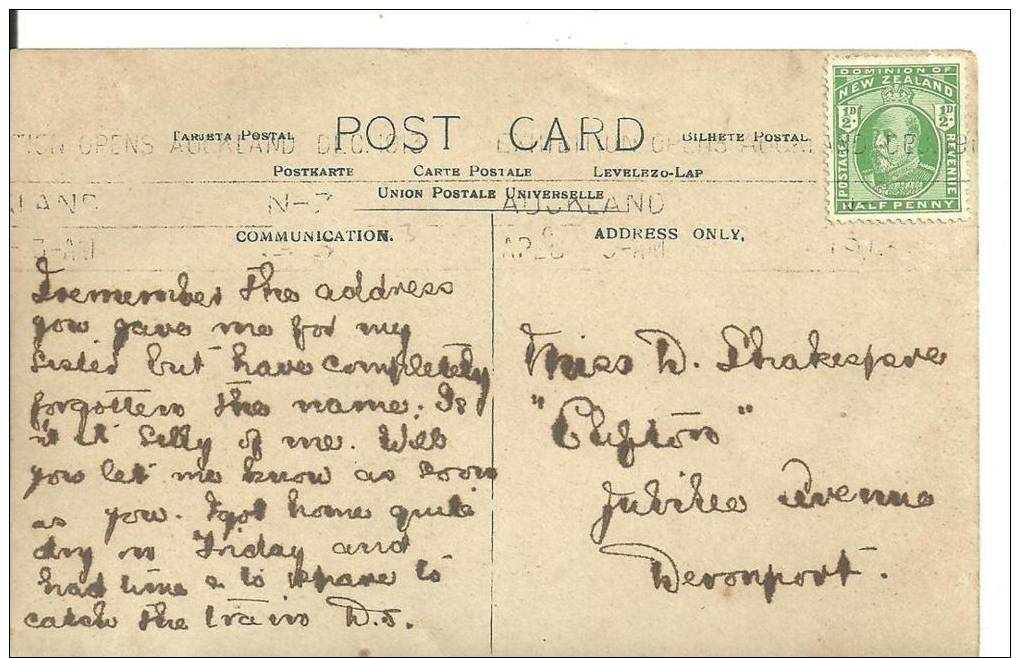 DOMINION OF
NEW ZEALAND
½D ½D
POSTAGE REVENUE
HALF PENNY
TARJETA POSTAL POST CARD BILHETE POSTAL
TION OPENS AUCKLAND DEC. 1913 EXHIBITION OPENS AUCKLAND DEC. 191
POSTKARTE CARTE POSTALE LEVELEZO-LAP
UNION POSTALE UNIVERSELLE
LAND N-Z AUCKLAND
COMMUNICATION. ADDRESS ONLY.
3-AM AP28 5-AM
I remember the address
you gave me for my
sister but have completely
forgotten the name. Is
it silly of me. Will
you let me know as soon
as you. I got home quite
dry on Friday and
had time to spare to
catch the train D.S.
Miss D. Shakespare
"Clifton"
Jubilee Avenue
Devonport.